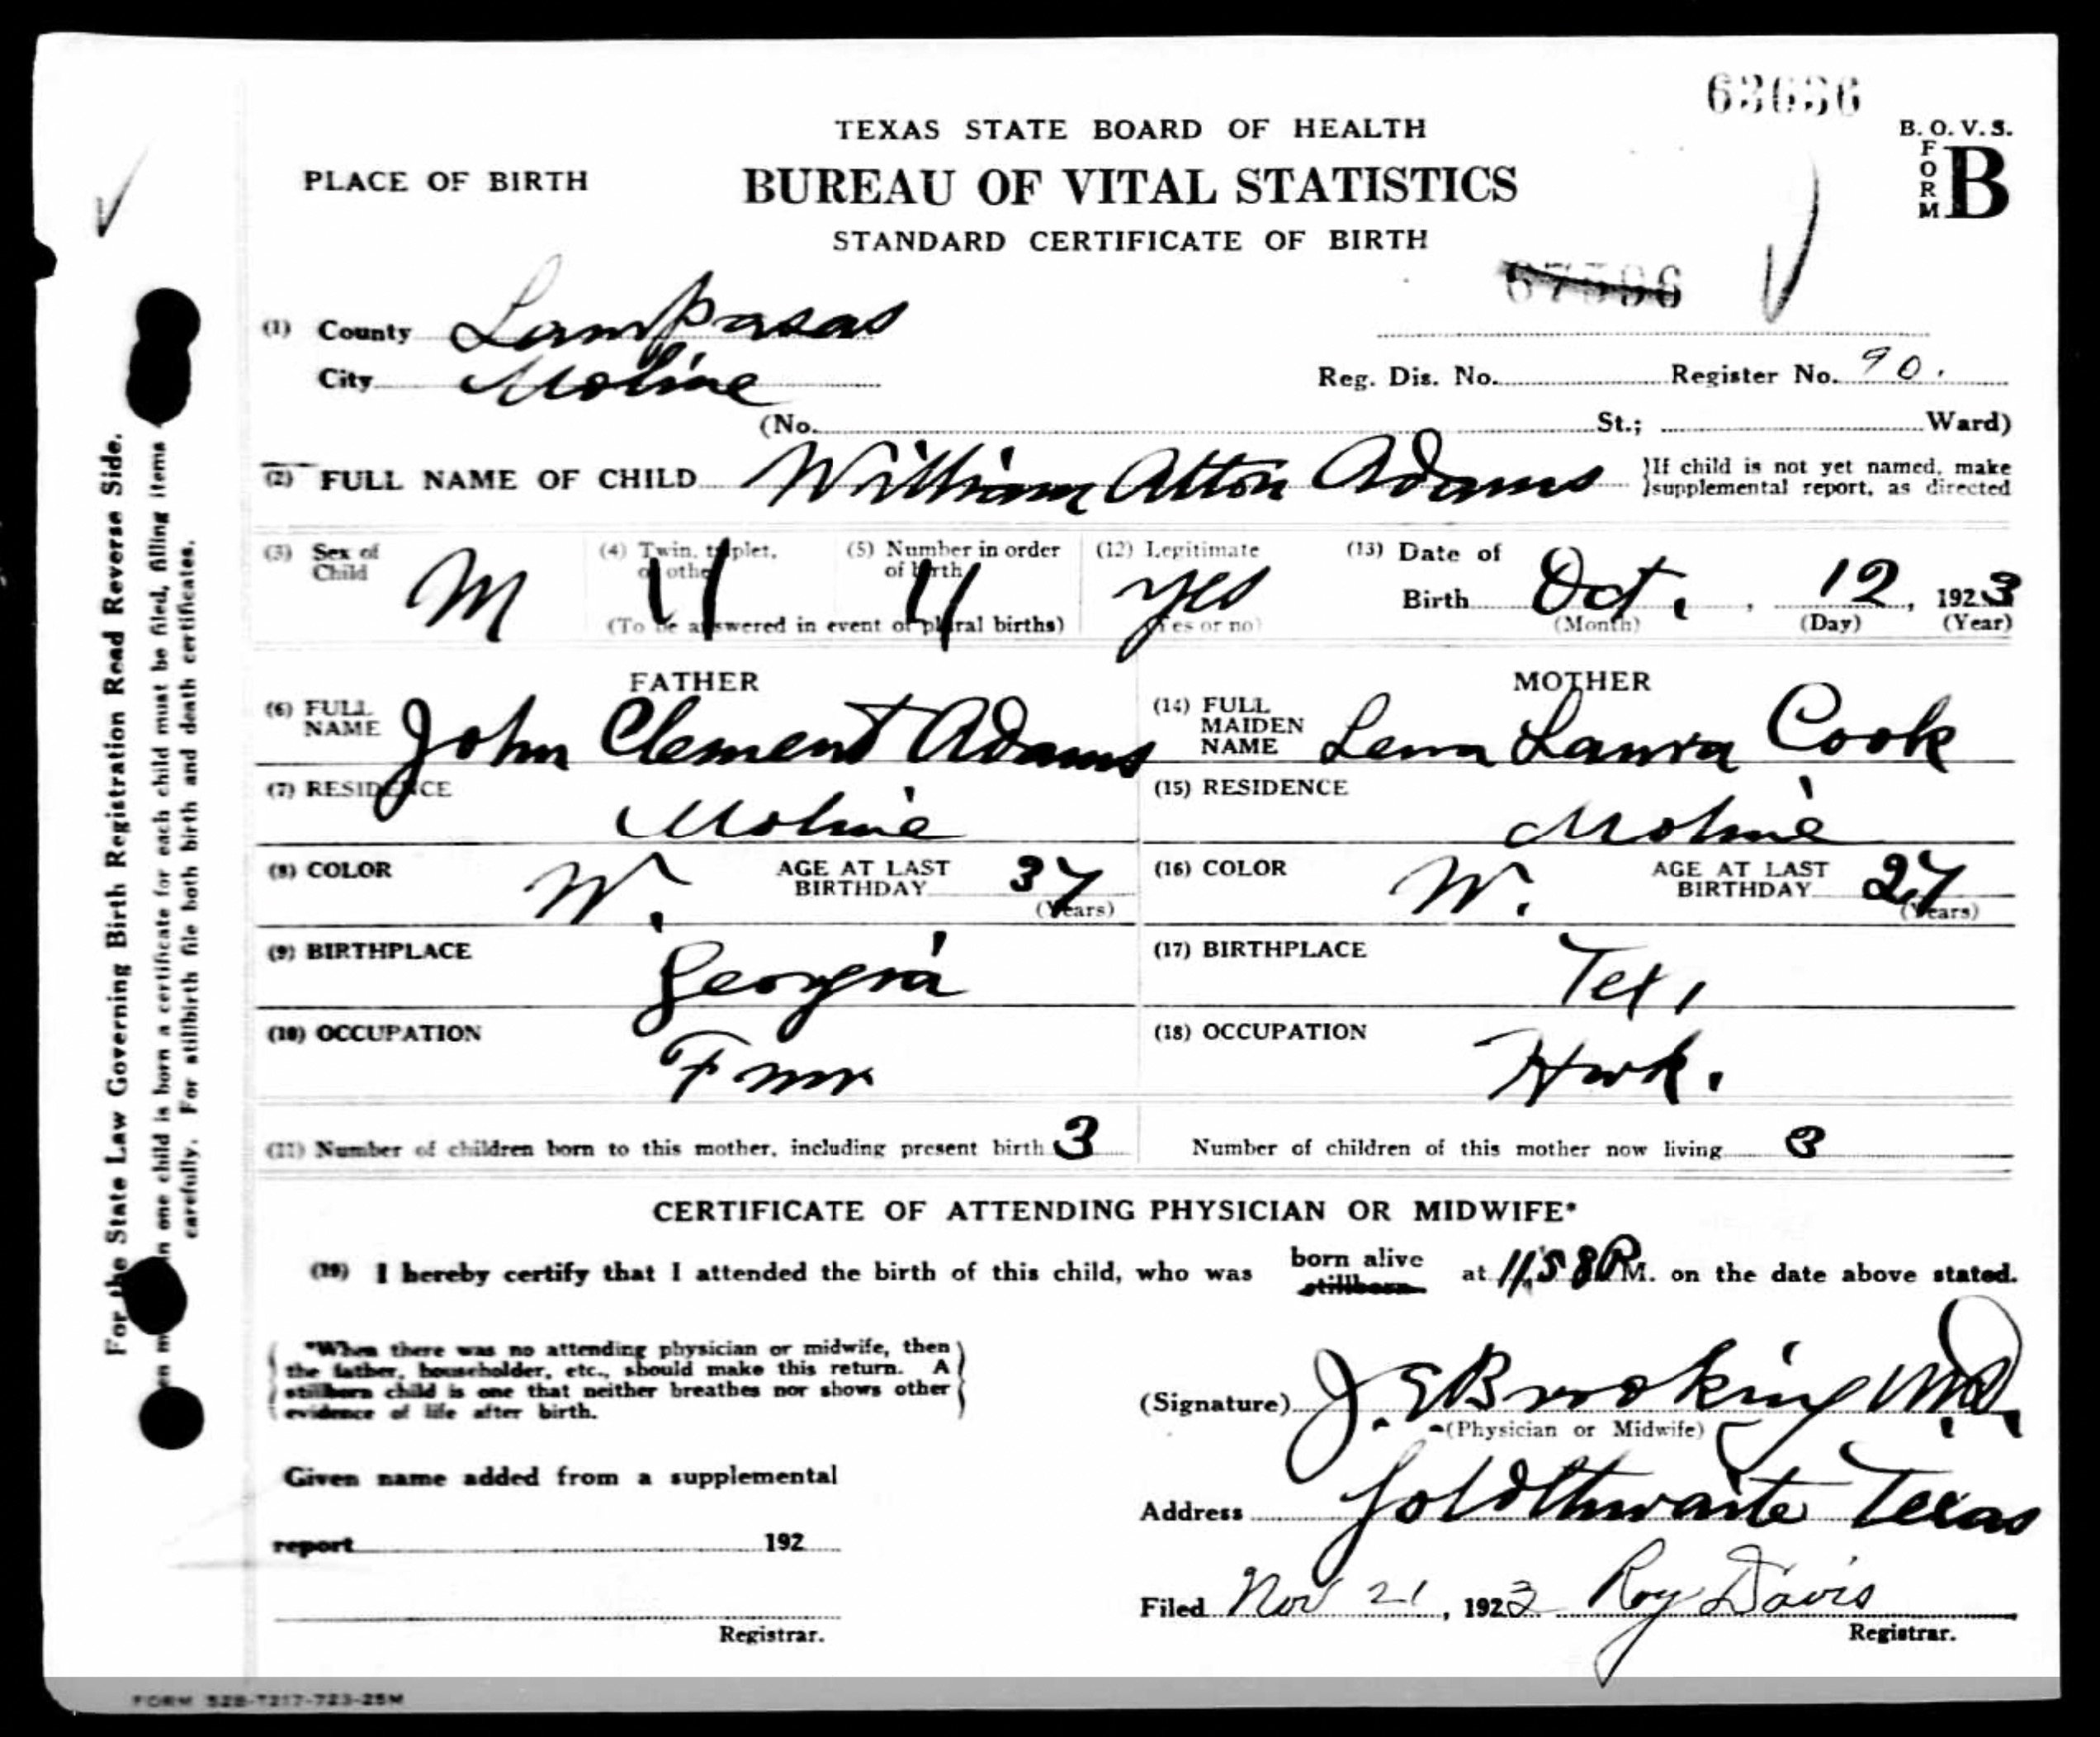 63636
TEXAS STATE BOARD OF HEALTH
B. O. V. S.
FORM B
PLACE OF BIRTH
BUREAU OF VITAL STATISTICS
STANDARD CERTIFICATE OF BIRTH
67596
(1) County Lampasas
City Moline
Reg. Dis. No. Register No. 90.
(No. St.; Ward)
(2) FULL NAME OF CHILD William Alton Adams
If child is not yet named, make
supplemental report, as directed
(3) Sex of Child M
(4) Twin, triplet, or other
(5) Number in order of birth
(To be answered in event of plural births)
(12) Legitimate yes
(Yes or no)
(13) Date of
Birth Oct. , 12 , 1923
(Month) (Day) (Year)
FATHER
(6) FULL NAME John Clement Adams
(7) RESIDENCE Moline
(8) COLOR W. AGE AT LAST BIRTHDAY 37
(Years)
(9) BIRTHPLACE Georgia
(10) OCCUPATION Fmr
MOTHER
(14) FULL MAIDEN NAME Lena Laura Cook
(15) RESIDENCE Moline
(16) COLOR W. AGE AT LAST BIRTHDAY 27
(Years)
(17) BIRTHPLACE Tex,
(18) OCCUPATION Hwk.
(11) Number of children born to this mother, including present birth 3
Number of children of this mother now living 3
CERTIFICATE OF ATTENDING PHYSICIAN OR MIDWIFE*
(19) I hereby certify that I attended the birth of this child, who was born alive stillborn at 11:58 P M. on the date above stated.
*When there was no attending physician or midwife, then
the father, householder, etc., should make this return. A
stillborn child is one that neither breathes nor shows other
evidence of life after birth.
(Signature) J. E Brooking M.D.
(Physician or Midwife)
Given name added from a supplemental
report 192
Registrar.
Address Goldthwaite Texas
Filed Nov 21, 1923 Roy Davis
Registrar.
For the State Law Governing Birth Registration Read Reverse Side.
n one child is born a certificate for each child must be filed, filling items
carefully. For stillbirth file both birth and death certificates.
FORM 528-7217-723-25M